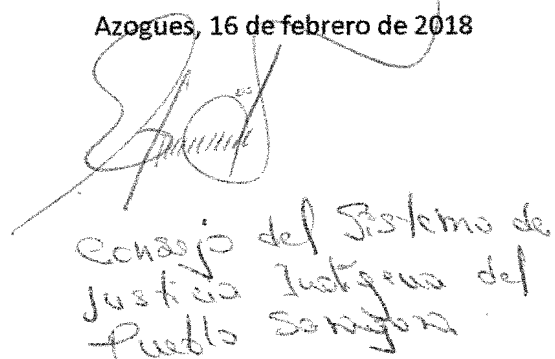 Azogues, 16 de febrero de 2018
Consejo del Sistema de
Justicia Indígena del
Pueblo